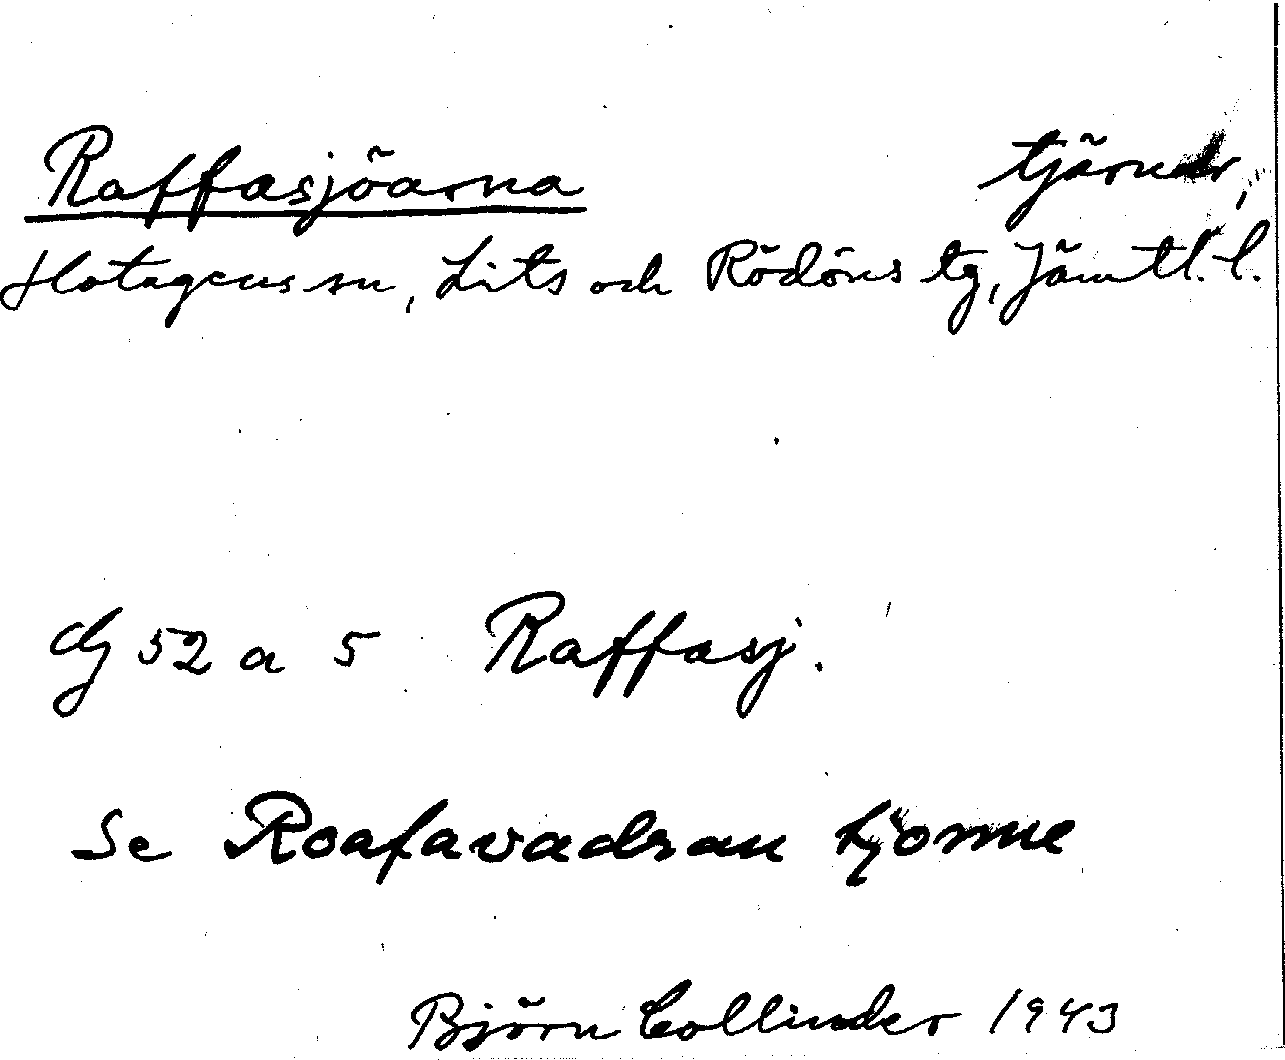 Raffasjöarna tjärnar,
Hotagens sn, Lits och Rödöns tg, Jämtl. l.
dg 52 a 5 Raffasj.
Se Roafavadsan tjorme
Björn Collinder 1943